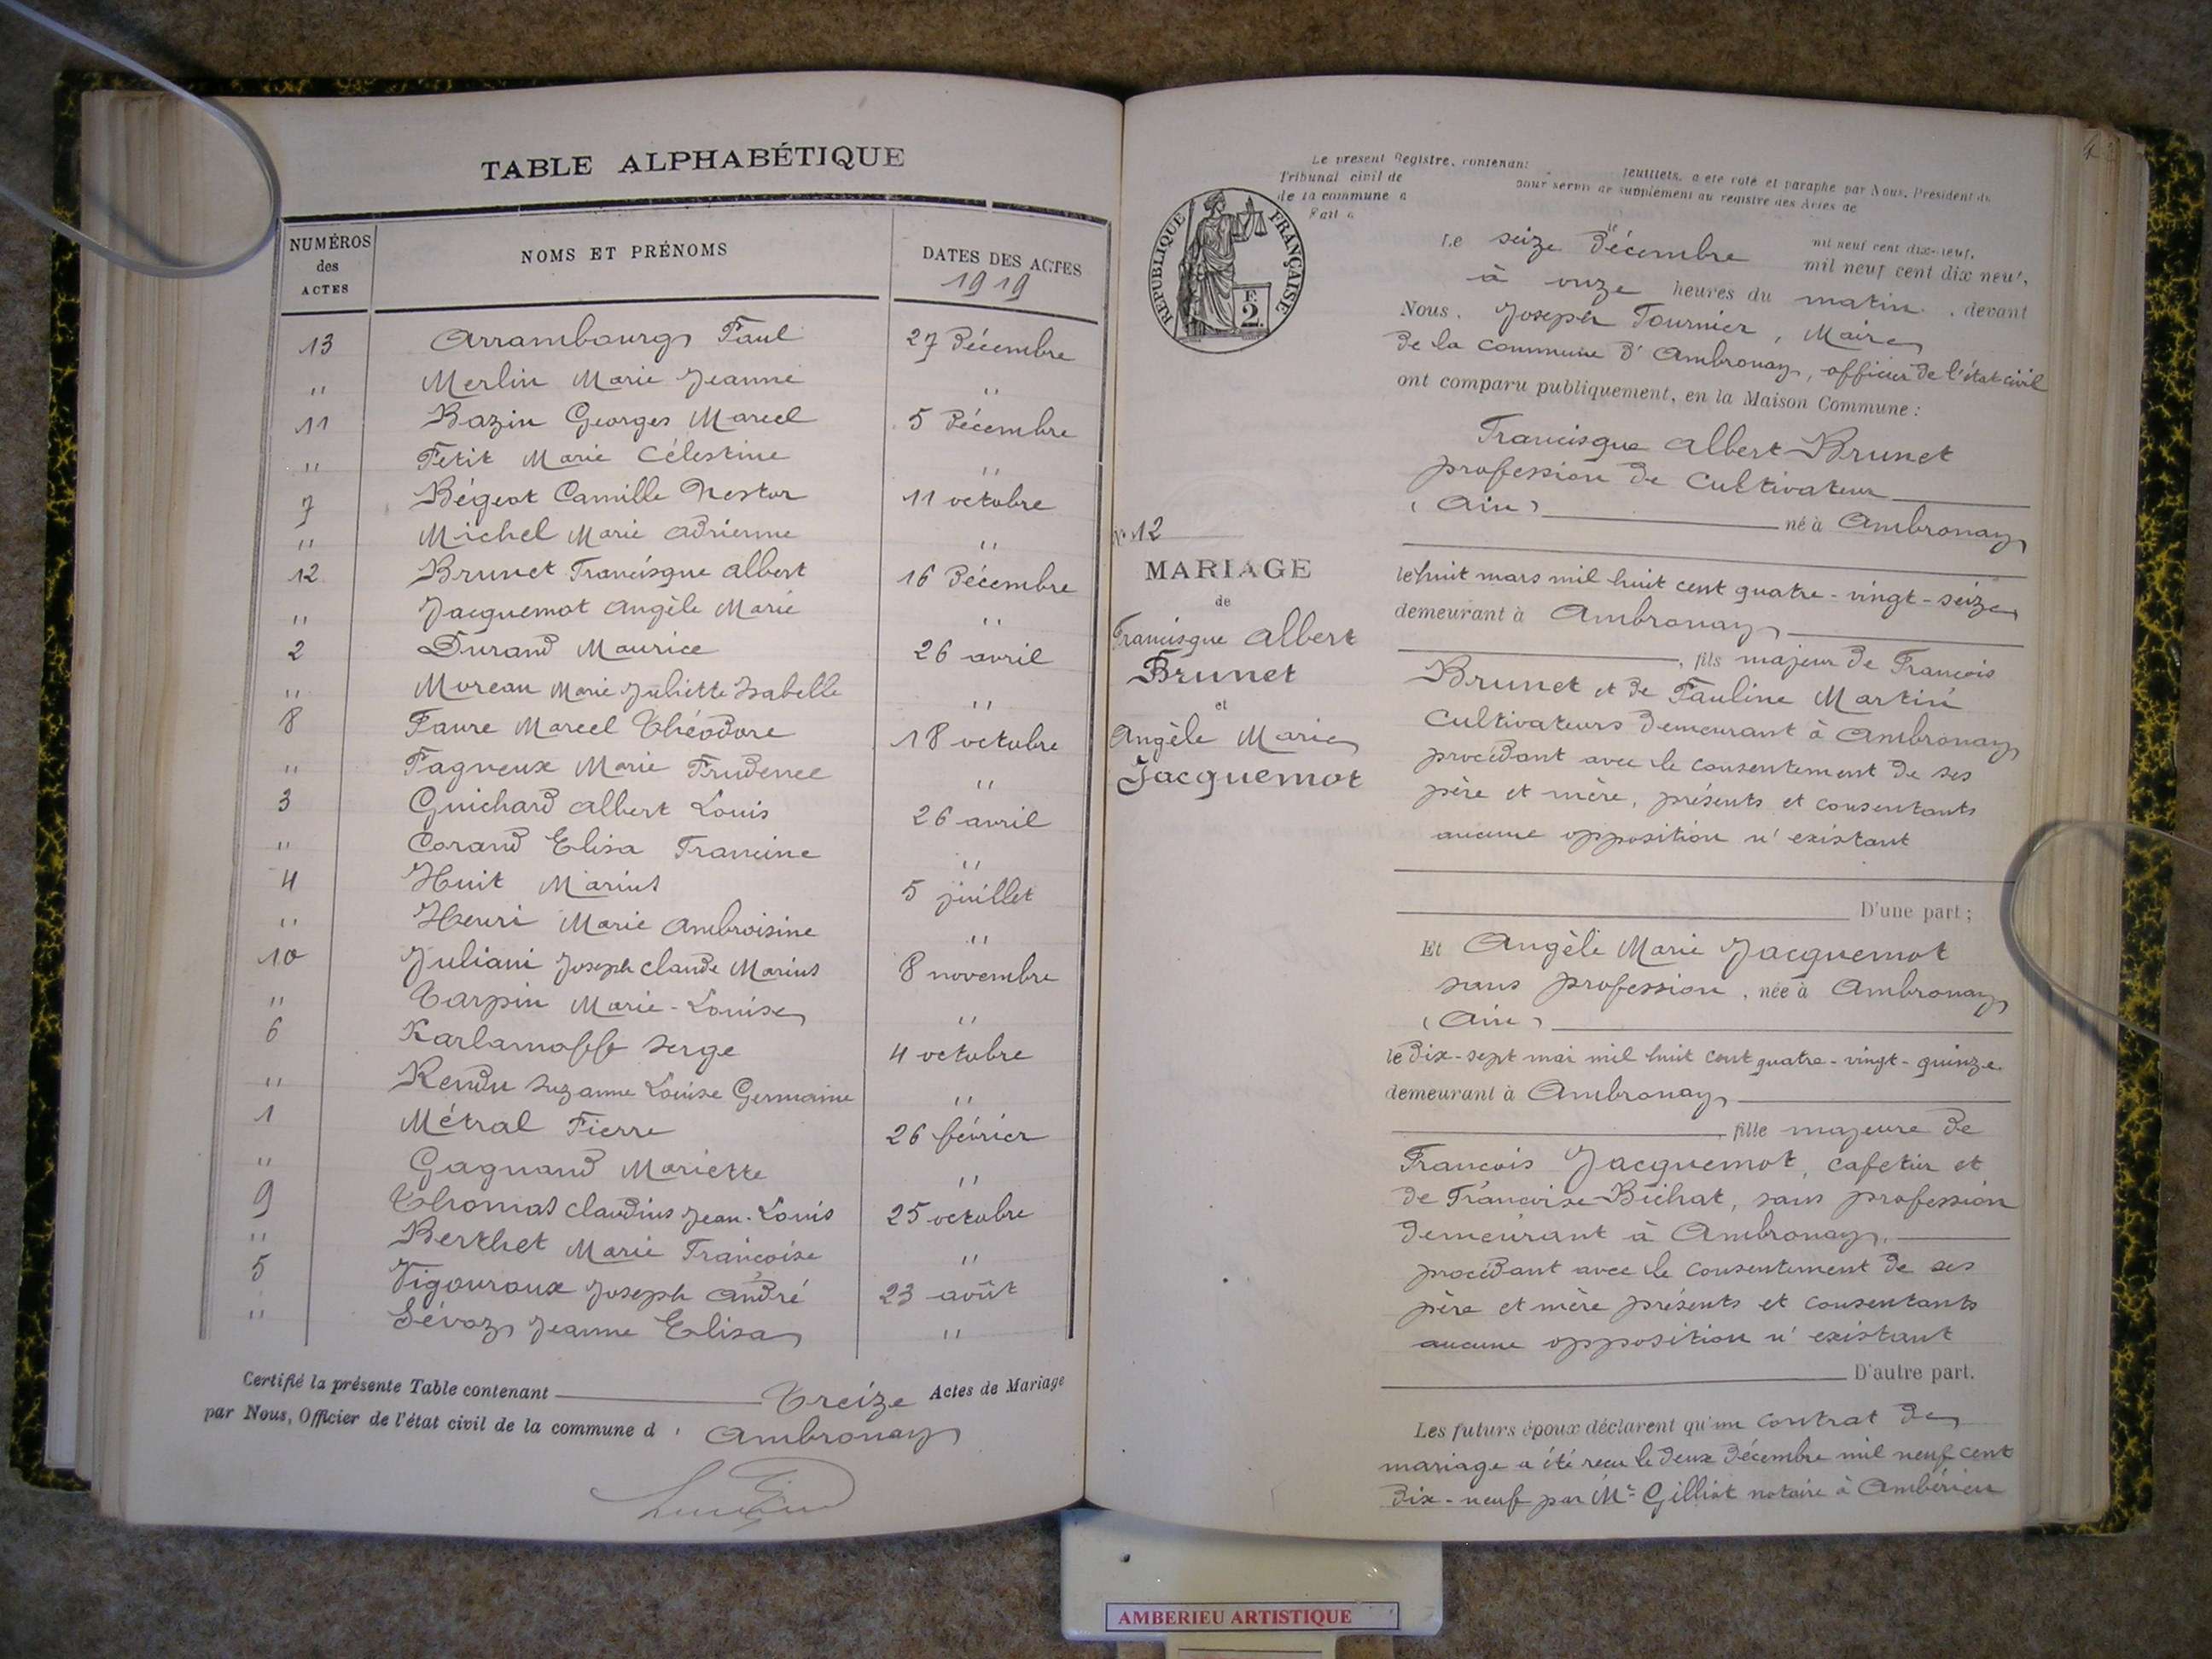 TABLE ALPHABÉTIQUE
NUMÉROS des ACTES
NOMS ET PRÉNOMS
DATES DES ACTES 1919
13 Arrambourg Paul 27 Décembre
" Merlin Marie Jeanne "
11 Bazin Georges Marcel 5 Décembre
" Petit Marie Célestine "
7 Bégeot Camille Nestor 11 octobre
" Michel Marie Adrienne "
12 Brunet Francisque Albert 16 Décembre
" Jacquemot Angèle Marie "
2 Durand Maurice 26 avril
" Moreau Marie Juliette Isabelle "
8 Faure Marcel Théodore 18 octobre
" Pagneux Marie Prudence "
3 Guichard Albert Louis 26 avril
" Corand Elisa Francine "
4 Huit Marius 5 juillet
" Henri Marie Ambroisine "
10 Juliani Joseph Claude Marius 8 novembre
" Tarpin Marie-Louise "
6 Karlamoff Serge 4 octobre
" Rendu Suzanne Louise Germaine "
1 Métral Pierre 26 février
" Gagnand Mariette "
9 Thomas Claudius Jean-Louis 25 octobre
" Berthet Marie Françoise "
5 Vigouroux Joseph André 23 août
" Sévoz Jeanne Elisa "
Certifié la présente Table contenant Treize Actes de Mariage
par Nous, Officier de l'état civil de la commune d' Ambronay
Le présent Registre, contenant feuillets, a été coté et paraphé par Nous, Président du
Tribunal civil de pour servir de supplément au registre des Actes de
de la commune d
Fait à
mil neuf cent dix-neuf.
REPUBLIQUE FRANÇAISE
F. 2.
Le seize Décembre mil neuf cent dix neuf,
à onze heures du matin, devant
Nous, Joseph Tournier, Maire
de la commune d'Ambronay, officier de l'état civil
ont comparu publiquement, en la Maison Commune :
Francisque Albert Brunet
profession de Cultivateur
né à Ambronay
(Ain)
le huit mars mil huit cent quatre-vingt-seize
demeurant à Ambronay
, fils majeur de François
Brunet et de Pauline Martin
Cultivateurs demeurant à Ambronay
procédant avec le consentement de ses
père et mère, présents et consentants
aucune opposition n'existant
D'une part ;
N° 12
MARIAGE
de
Francisque Albert
Brunet
et
Angèle Marie
Jacquemot
Et Angèle Marie Jacquemot
sans profession, née à Ambronay
(Ain)
le dix-sept mai mil huit cent quatre-vingt-quinze
demeurant à Ambronay
, fille majeure de
François Jacquemot, cafetier et
de Françoise Bichat, sans profession
demeurant à Ambronay.
procédant avec le consentement de ses
père et mère présents et consentants
aucune opposition n'existant
D'autre part.
Les futurs époux déclarent qu'un contrat de
mariage a été reçu le deux Décembre mil neuf cent
dix-neuf par Me Gilliot notaire à Ambérieu
AMBERIEU ARTISTIQUE